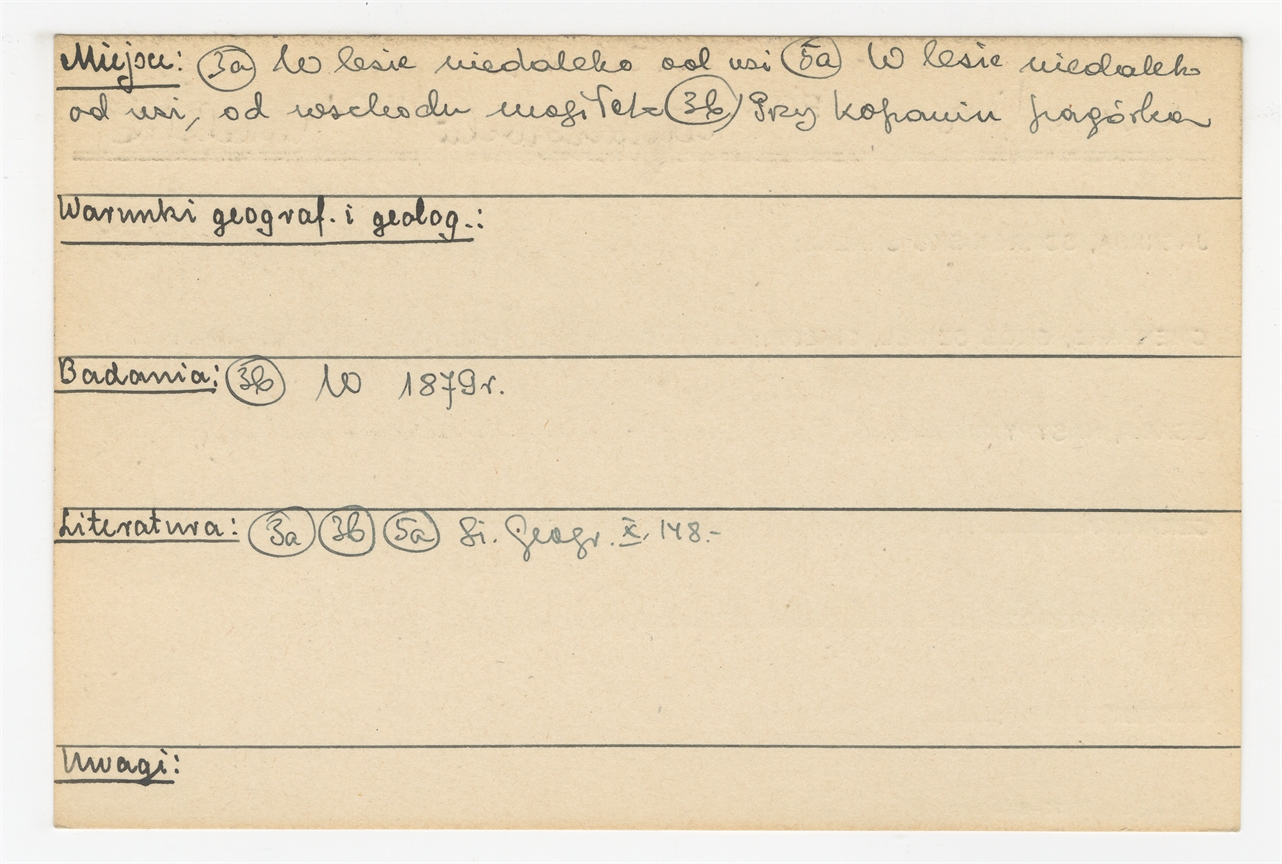 Miejsce: (3a) W lesie niedaleko od wsi (5a) W lesie niedaleko
od wsi, od wschodu mogiłek (3b) Przy kopaniu pagórka
Warunki geograf. i geolog.:
Badania: (3b) W 1879 r.
Literatura: (3a) (3b) (5a) Sł. Geogr. X. 148.-
Uwagi: